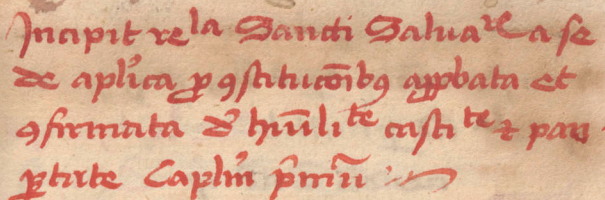 Incipit reͬla Sancti Saluaͬͤ a se
de aplica ꝓ ꝯstitucōībꝰ apꝓbata et
ꝯfirmata d' hūiliᵗᵉ castiᵗᵉ ⁊ pau
ꝑtate Caplm̄ p'mū